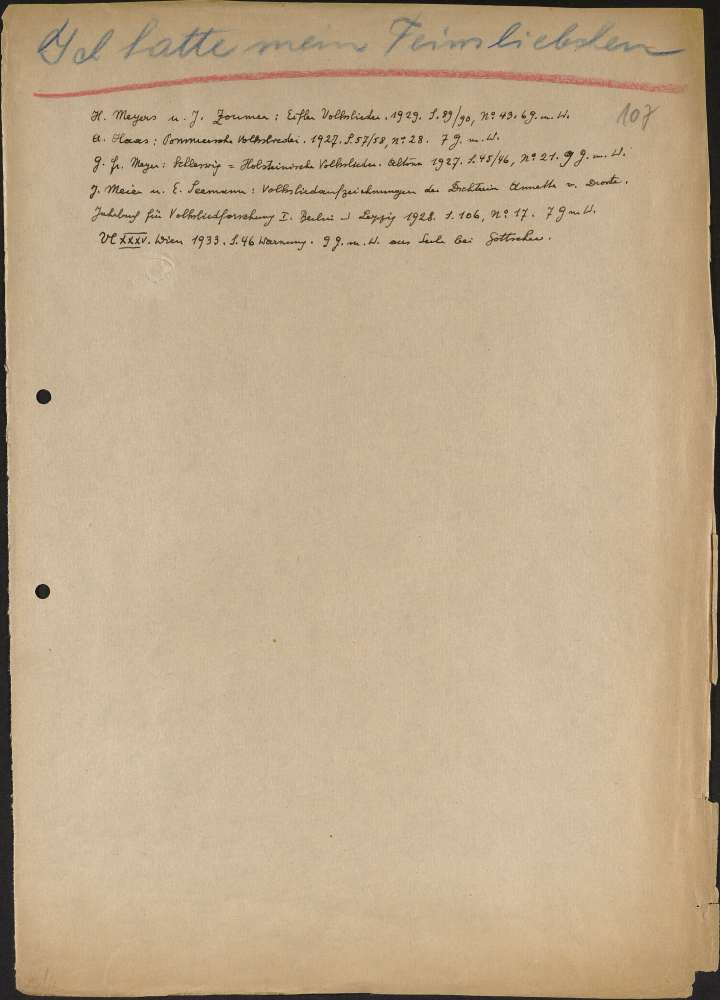 Ich hatte mein Feinsliebchen
107
H. Meyers u. J. Zoumer: Eifler Volkslieder. 1929. S. 89/90, No 43. 6 g. m. W.
A. Haas: Pommersche Volkslieder. 1927. S. 57/58, no 28. 7 g. m. W.
G. Fr. Meyer: Schleswig = Holsteinische Volkslieder. Altona 1927. S. 45/46, no 21. 9 g. m. W.
J. Meier u. E. Seemann: Volksliedaufzeichnungen der Dichterin Annette v. Droste.
Jahrbuch für Volksliedforschung I. Berlin u Leipzig 1928. S. 106, No 17. 7 g m W.
Vl XXXV. Wien 1933. S. 46 Warnung. 9 g. m. W. aus bei Gottschee.